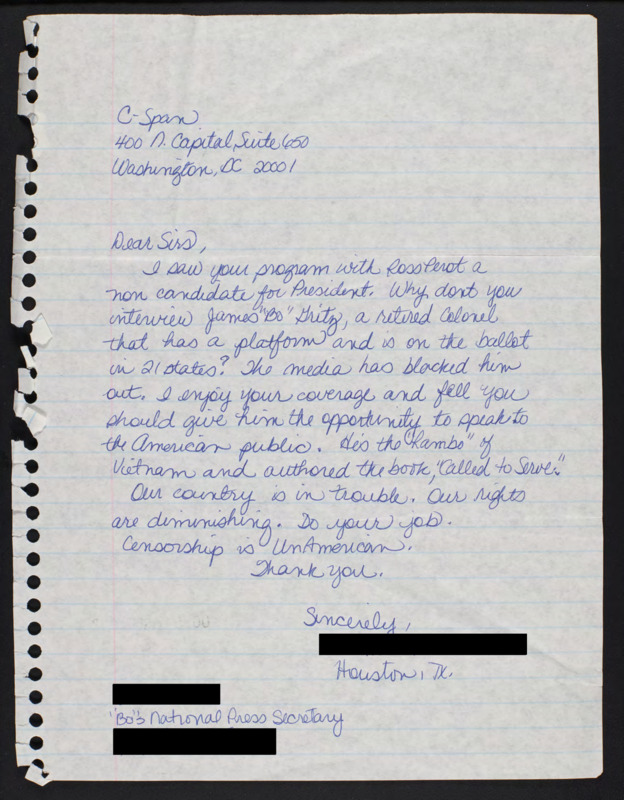 C-Span
400 N. Capital, Suite 650
Washington, DC 20001
Dear Sirs,
I saw your program with Ross Perot a
non candidate for President. Why dont you
interview James "Bo" Gritz, a retired Colonel
that has a platform and is on the ballot
in 21 states? The media has blacked him
out. I enjoy your coverage and fell you
should give him the opportunity to speak to
the American public. He's the "Rambo" of
Vietnam and authored the book, "Called to Serve."
Our country is in trouble. Our rights
are diminishing. Do your job.
Censorship is UnAmerican.
Thank you.
Sincerely,
Houston, TX.
"Bo"s National Press Secretary